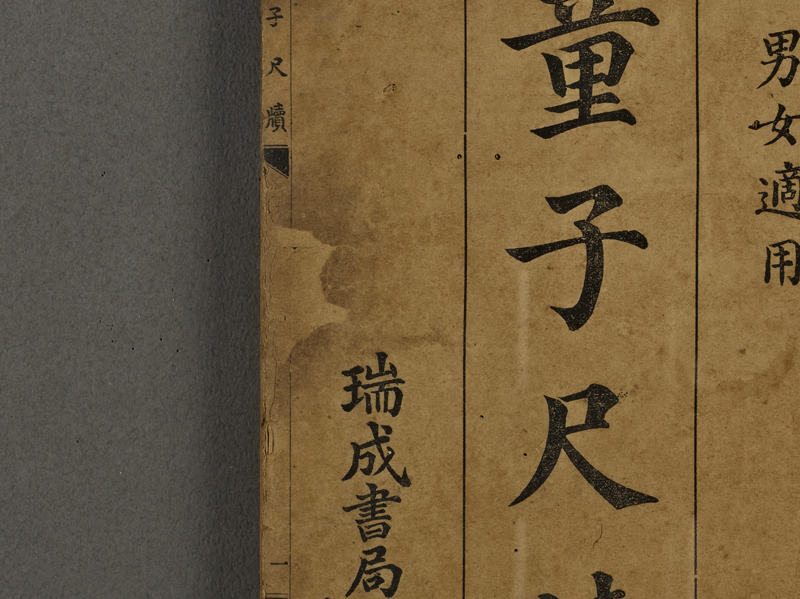 男女適用
童子尺
瑞成書局
子尺牘
一